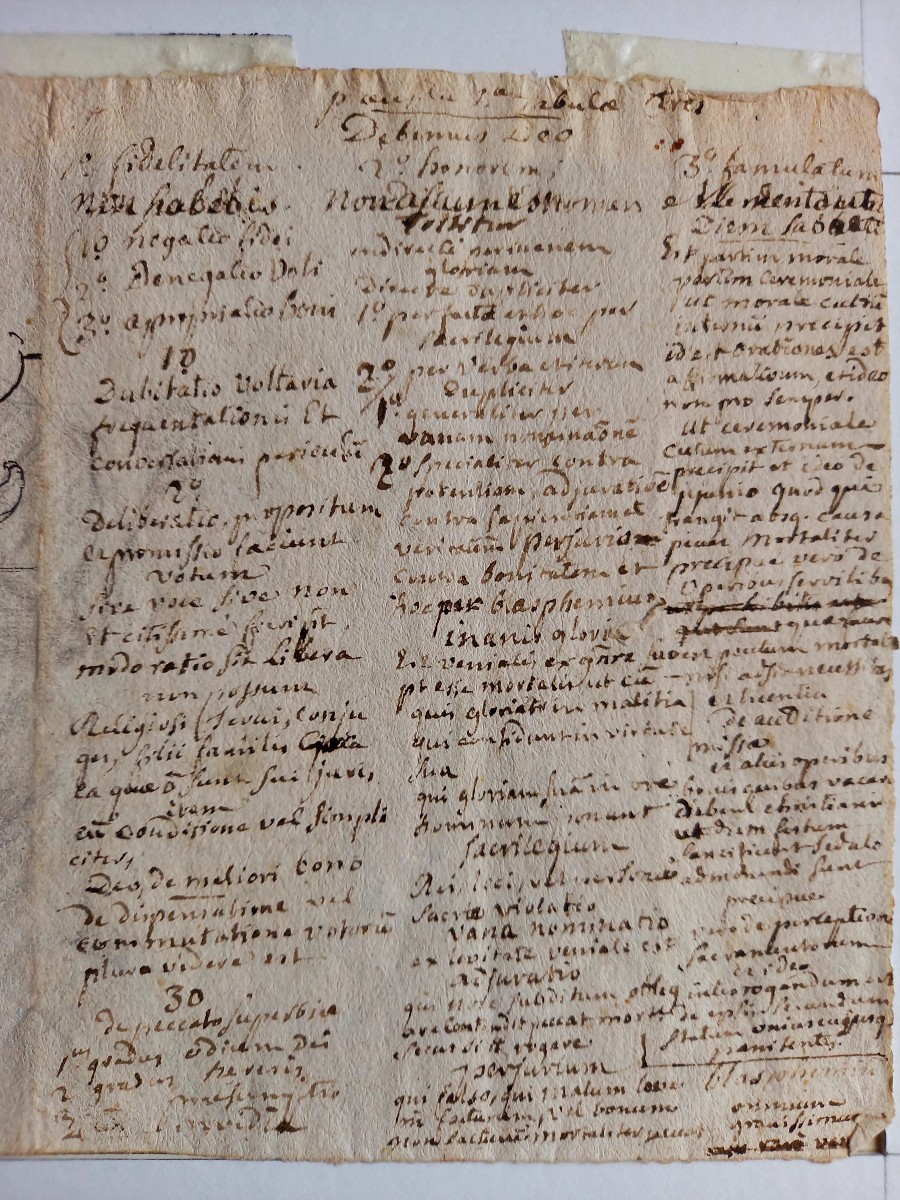 tabulæ tres
Debemus Deo
1º fidelitatem
non habebis
1º negatio fidei
2º Denegatio Voti
3º appropriatio boni
1º
Dubitatio Voltaria
frequentationis Et
conversationis periculũ
2º
Deliberatio, propositum
et promissio faciunt
Votum
sive voce sive non
Et citissime
modo ratio sit Libera
non possunt
Religiosi, servi, conju
ges, filii familis
ea quæ õ sunt sui juris,
item
cũ conditione vel simpli
citer,
Deo, de meliori bono
De dispensatione vel
commutatione votorũ
plura videre est
3º
de peccato superbiæ
1us gradus odium Dei
2 gradus heresis
præsumptio
3
2º honorem,
non assumes nomen
tollitur
indirecte per inanem
gloriam
Directe dupliciter
1º per facta et hoc per
sacrilegium
2º per verba et iterum
Dupliciter
1º generaliter per
vanam nominãonẽ
2º specialiter contra
potentiam, adjurãtioe
contra sapientiam et
veritatem perjurium
contra bonitatem et
hoc per blasphemium
inanis gloria
Est venialis ex gñre suo
pt esse mortalis ut cũ
quis gloriatur in malitia
qui confidunt in virtute
sua
qui gloriam suãm in ore
hominum ponunt
sacrilegium
Rei, loci, vel personæ
sacræ violatio
vana nominatio
ex levitate veniale est
adjuratio
qui non subditum oblig
are contendit peccat mortr
secus si it rogare
perjurium
qui falso, qui malum leve
facturum, vel bonum
non facturũ mortaliter peccat
3º famulatum
Memento ut
Diem sabbati
Est partim morale
partim ceremoniale
ut morale cultũ
internũ precipit
id est orationes est
affirmativum, et ideo
non pro semper.
Ut ceremoniale
cultum externum
precipit et ideo de
jejunio quod qui
frangit absq. causa
peccat mortaliter
precipue vero de
operibus servilibus
peccatum mortale
nisi adsit necessitas
et licentia
de auditione
missæ
et aliis operibus
bonis quibus vacare
debent christiani
ut dum festum
sanctificent sedulo
admonendi sunt
precipue
vero de perceptione
sacramentorum
et ideo
interrogandum est
de
statum uniuscujusq
pænitentis
blasphemium
omnium
gravissimum